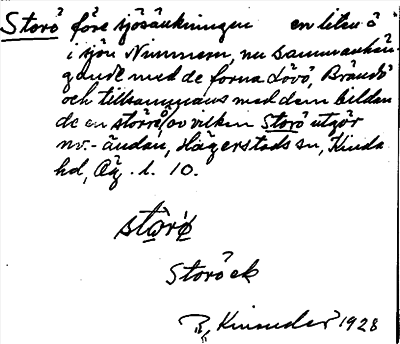 Storö före sjösänkningen en liten ö
i sjön Nimmern, nu sammanhän-
gande med de forna Lövö, Brändö
och tillsammans med dem bildan
de en större ö, av vilken Storö utgör
nv.-ändan, Hägerstads sn, Kinda
hd, Ög. l. 10.
störö
Storöck
1928